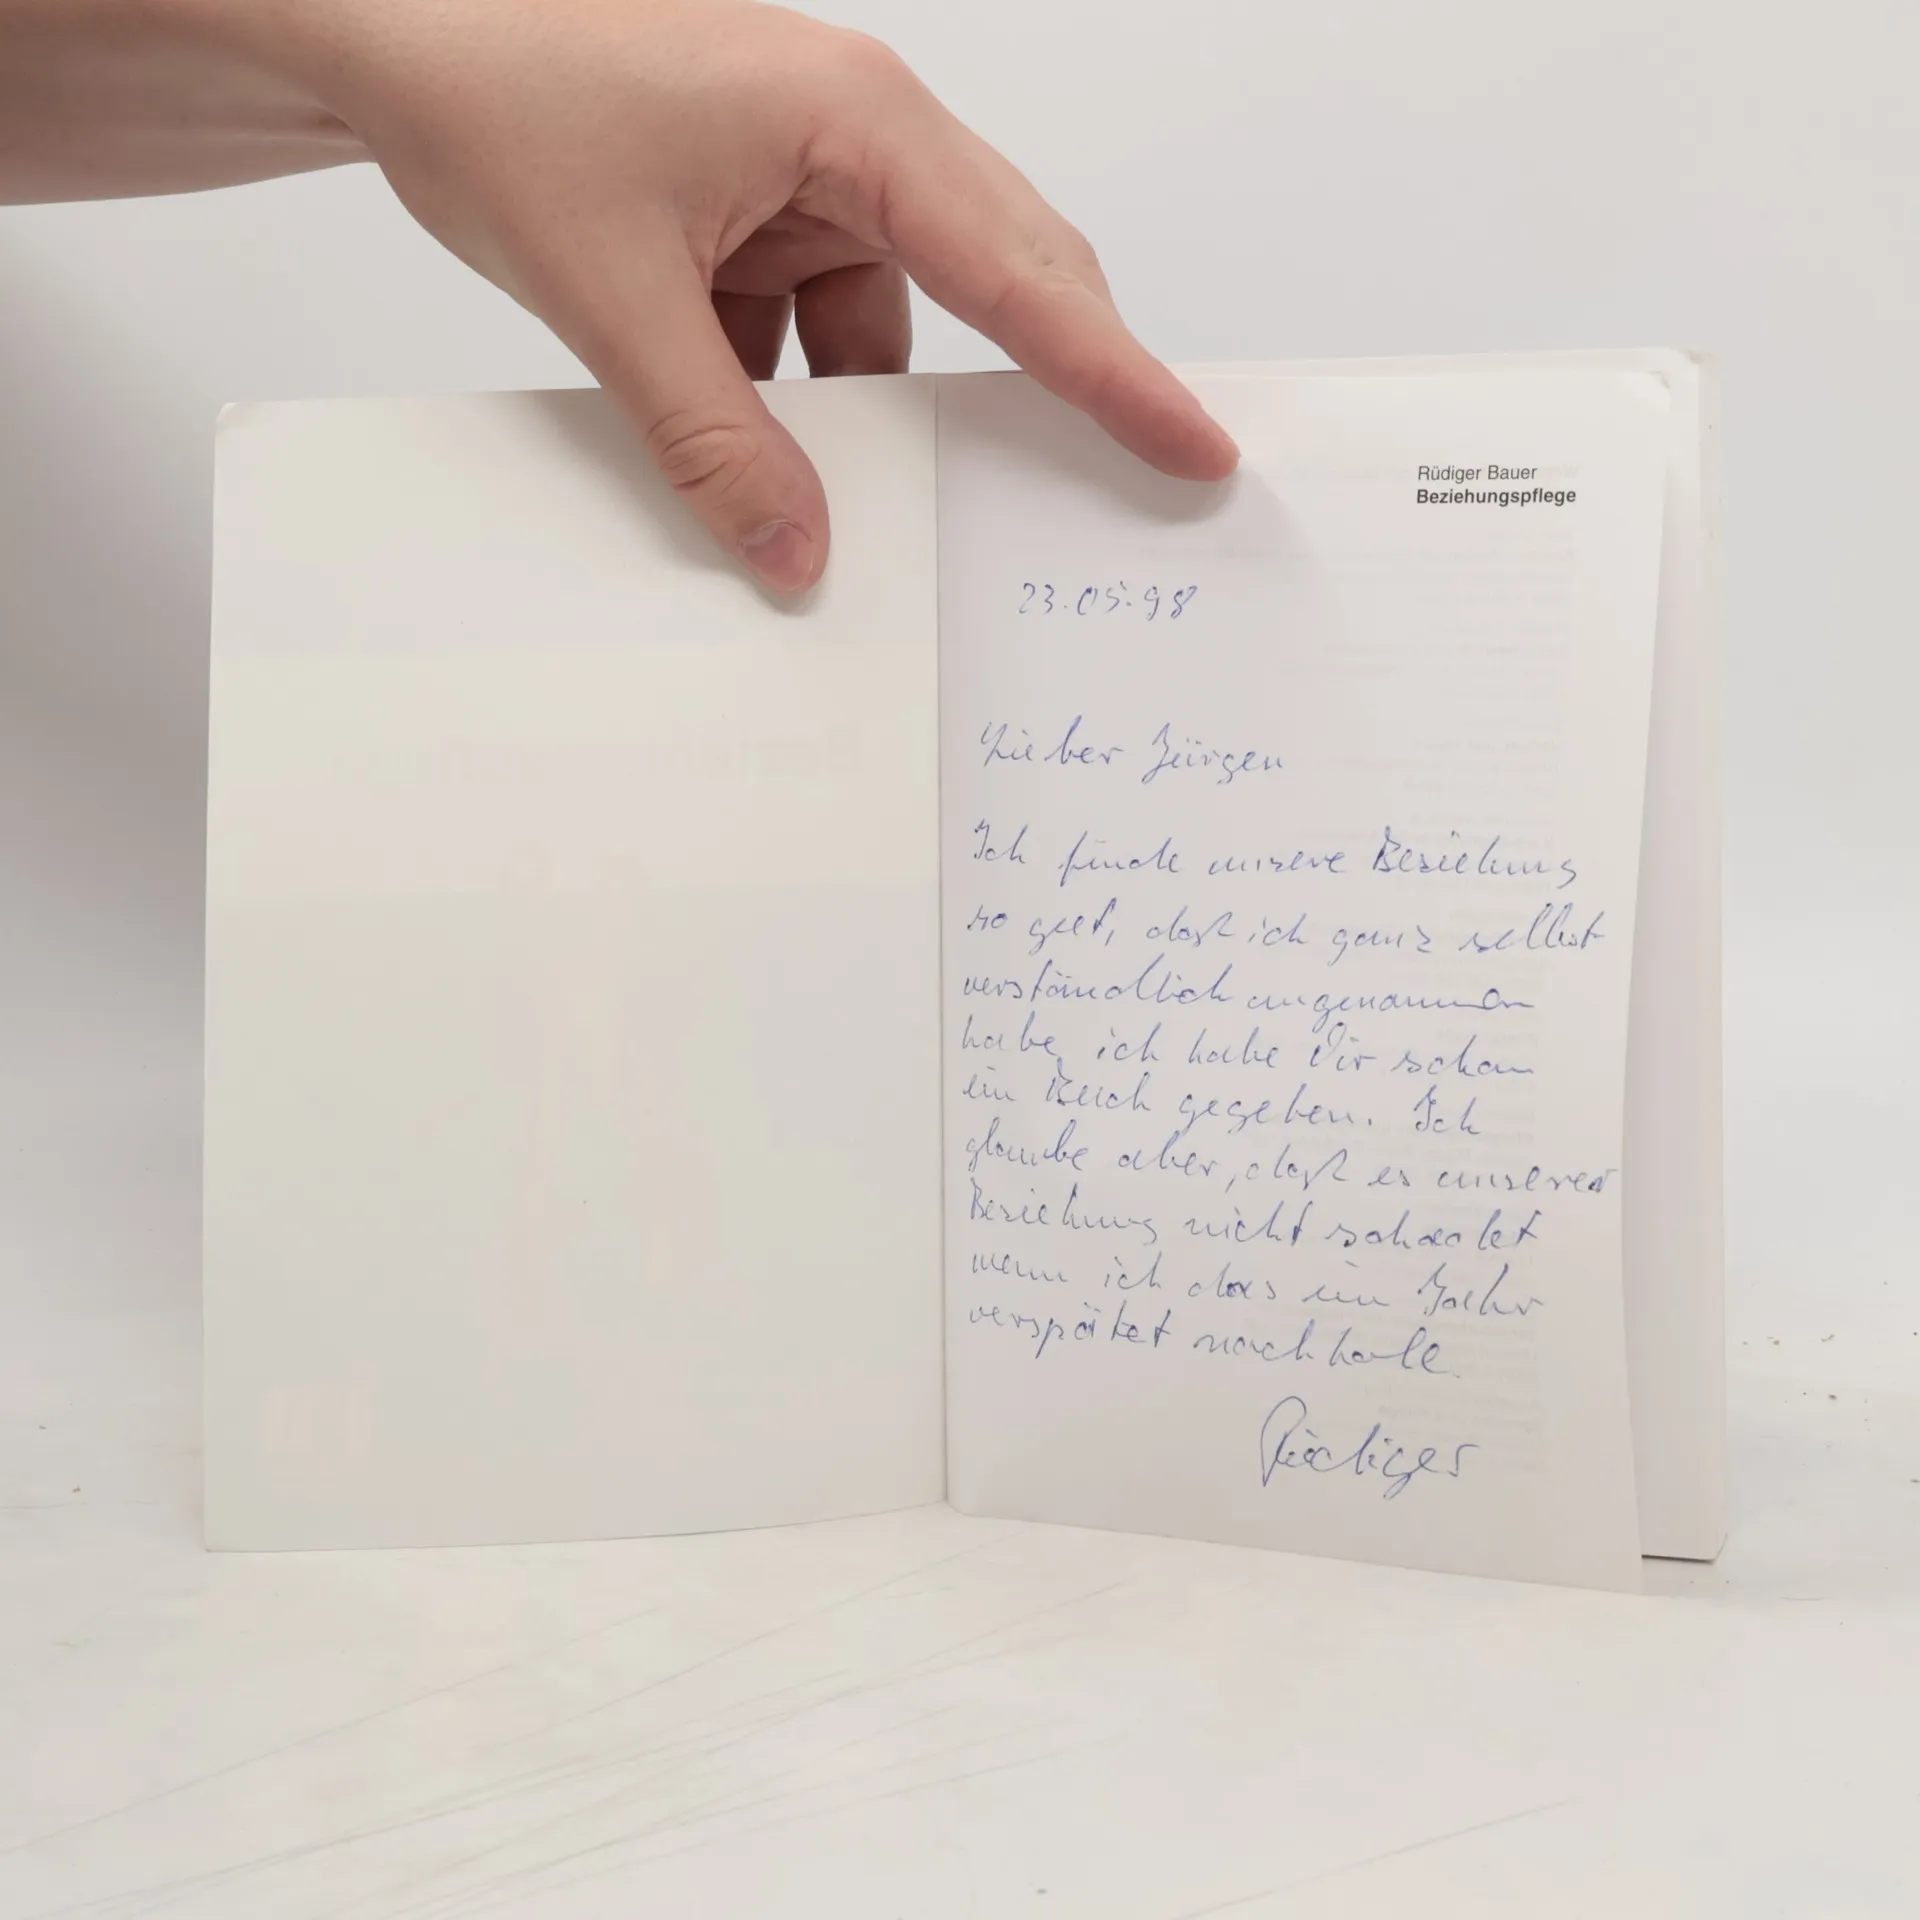 Rüdiger Bauer
Beziehungspflege
23.05.98
Lieber Jürgen
Ich finde unsere Beziehung
so gut, daß ich ganz selbst
verständlich angenommen
habe, ich habe Dir schon
ein Buch gegeben. Ich
glaube aber, daß es unserer
Beziehung nicht schadet
wenn ich das ein Jahr
verspätet nachhole.
Rüdiger